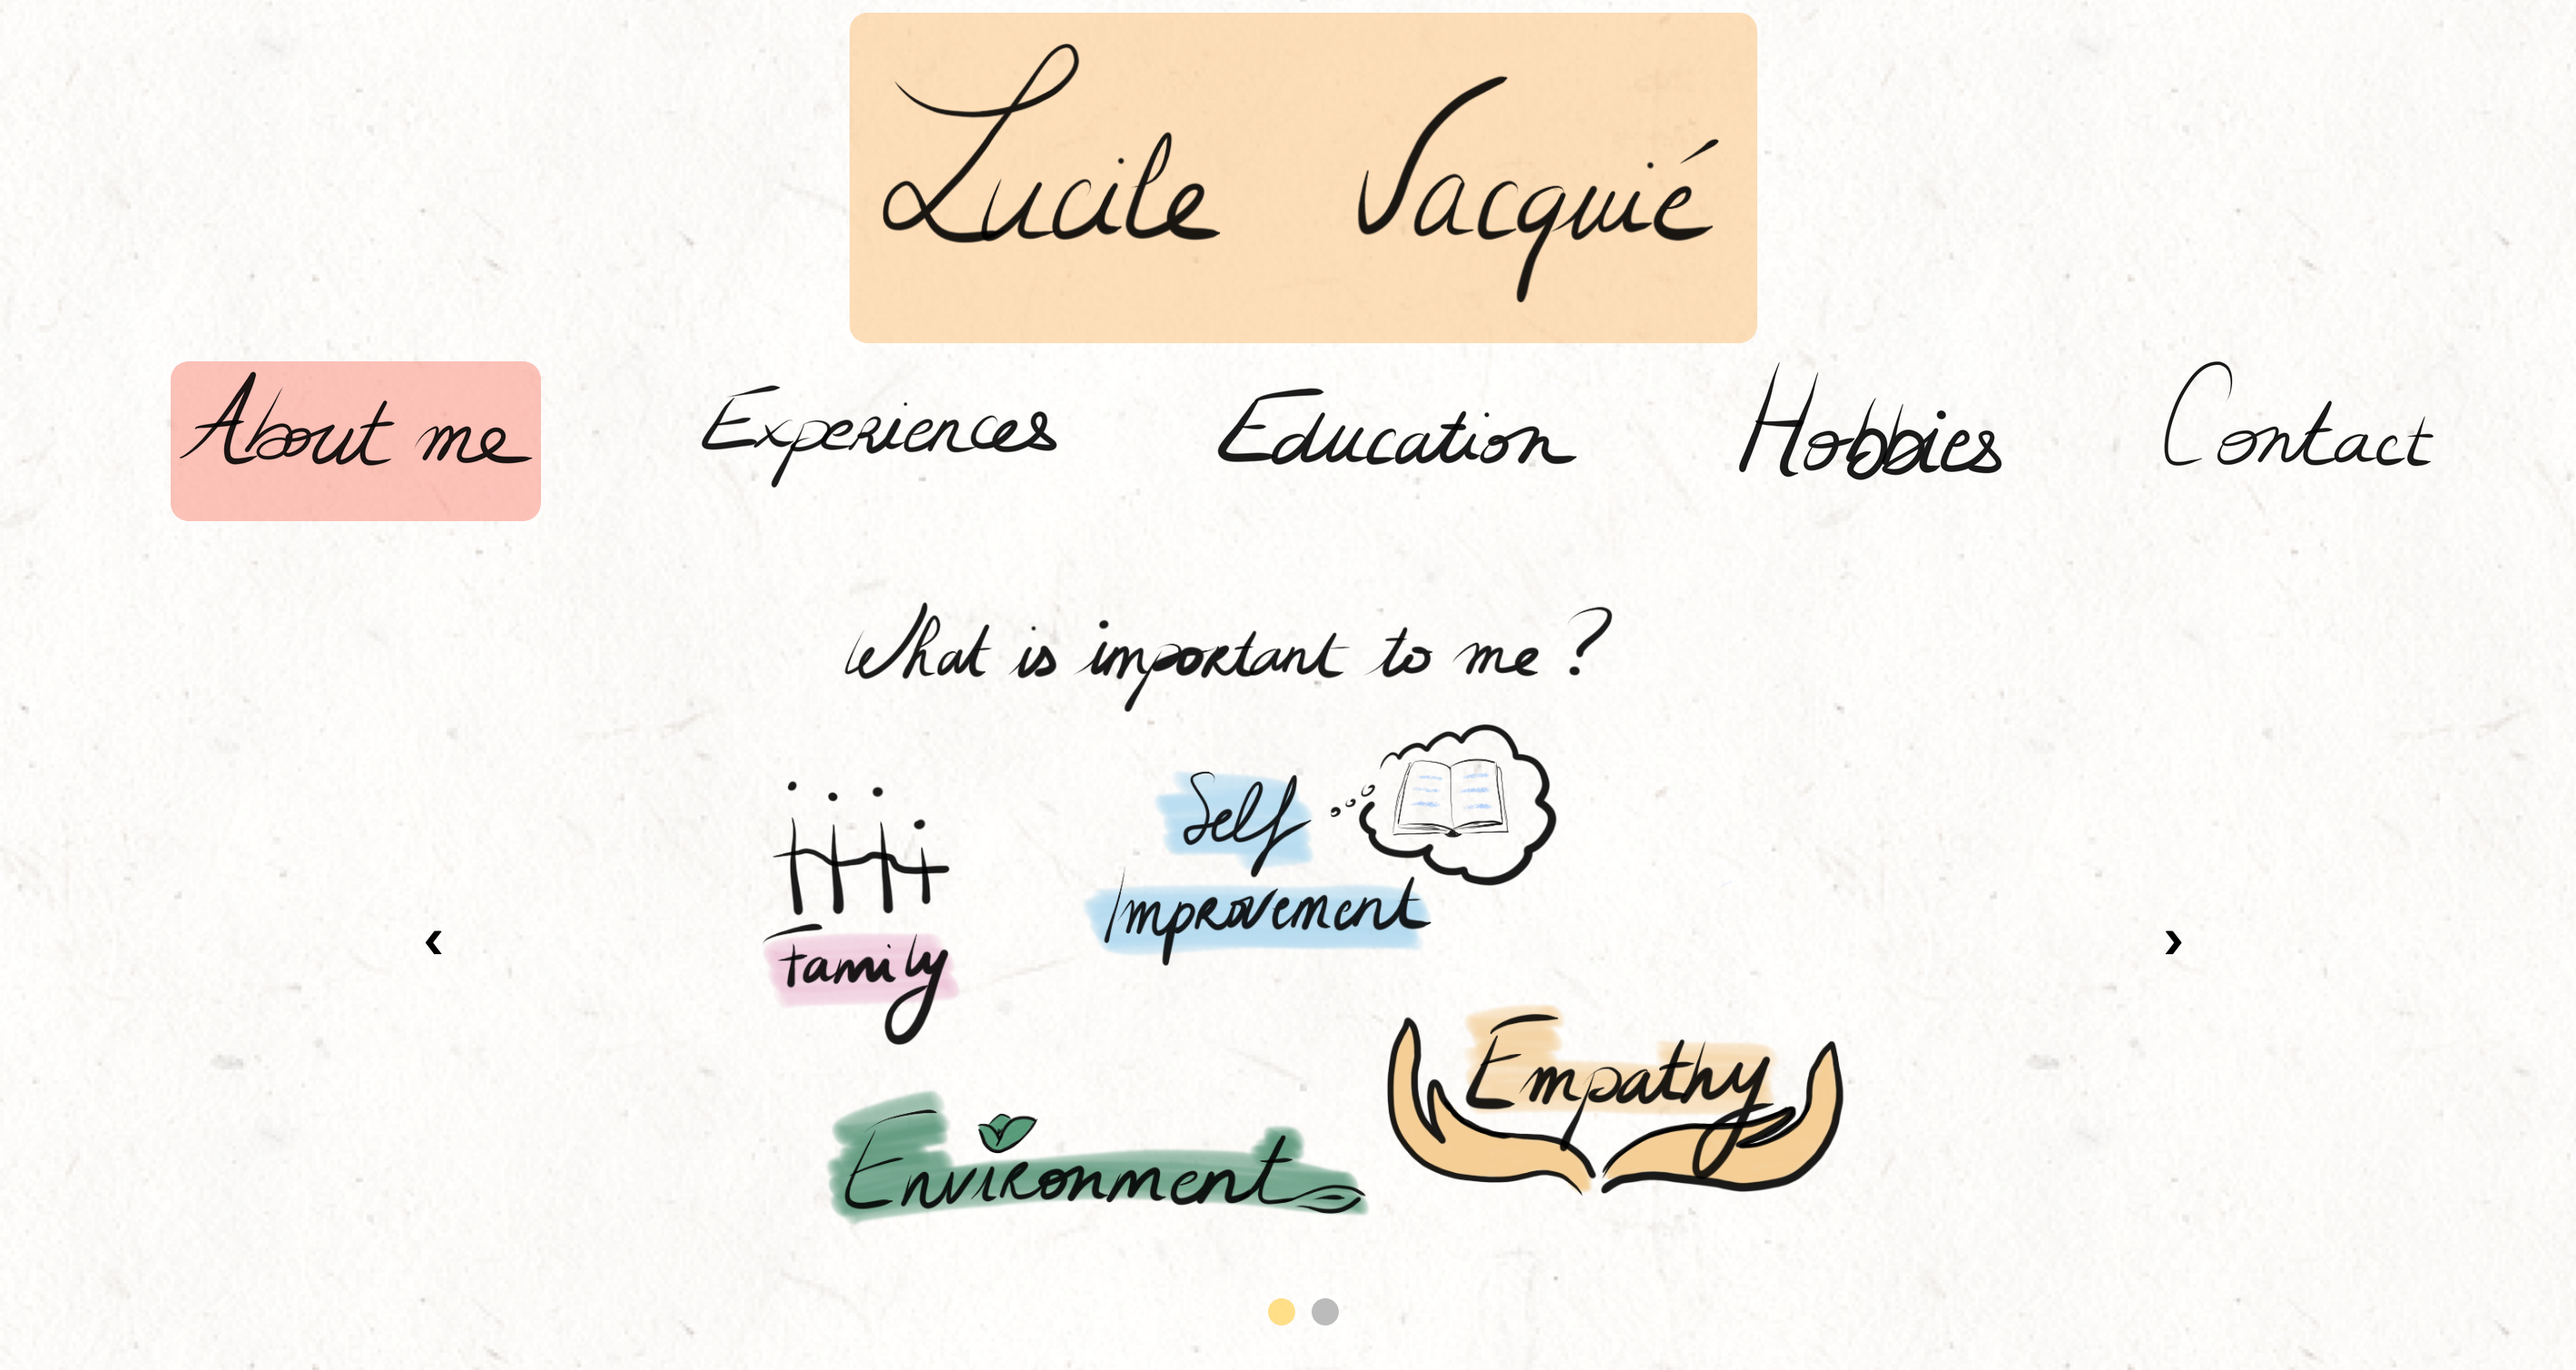 Lucile Jacquié
About me Experiences Education Hobbies Contact
What is important to me ?
Self
Improvement
Family
Empathy
Environment